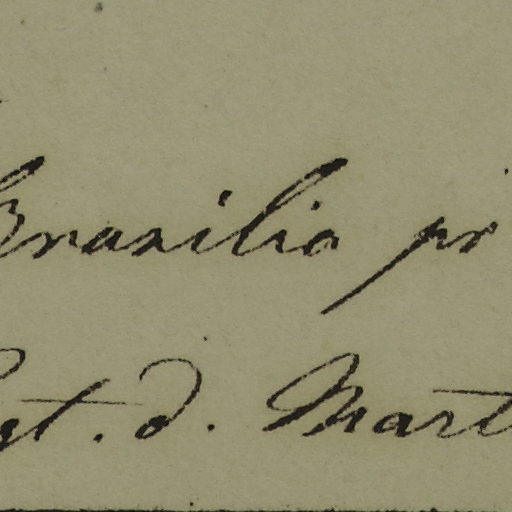 Brasilia pr
st. d. Mart